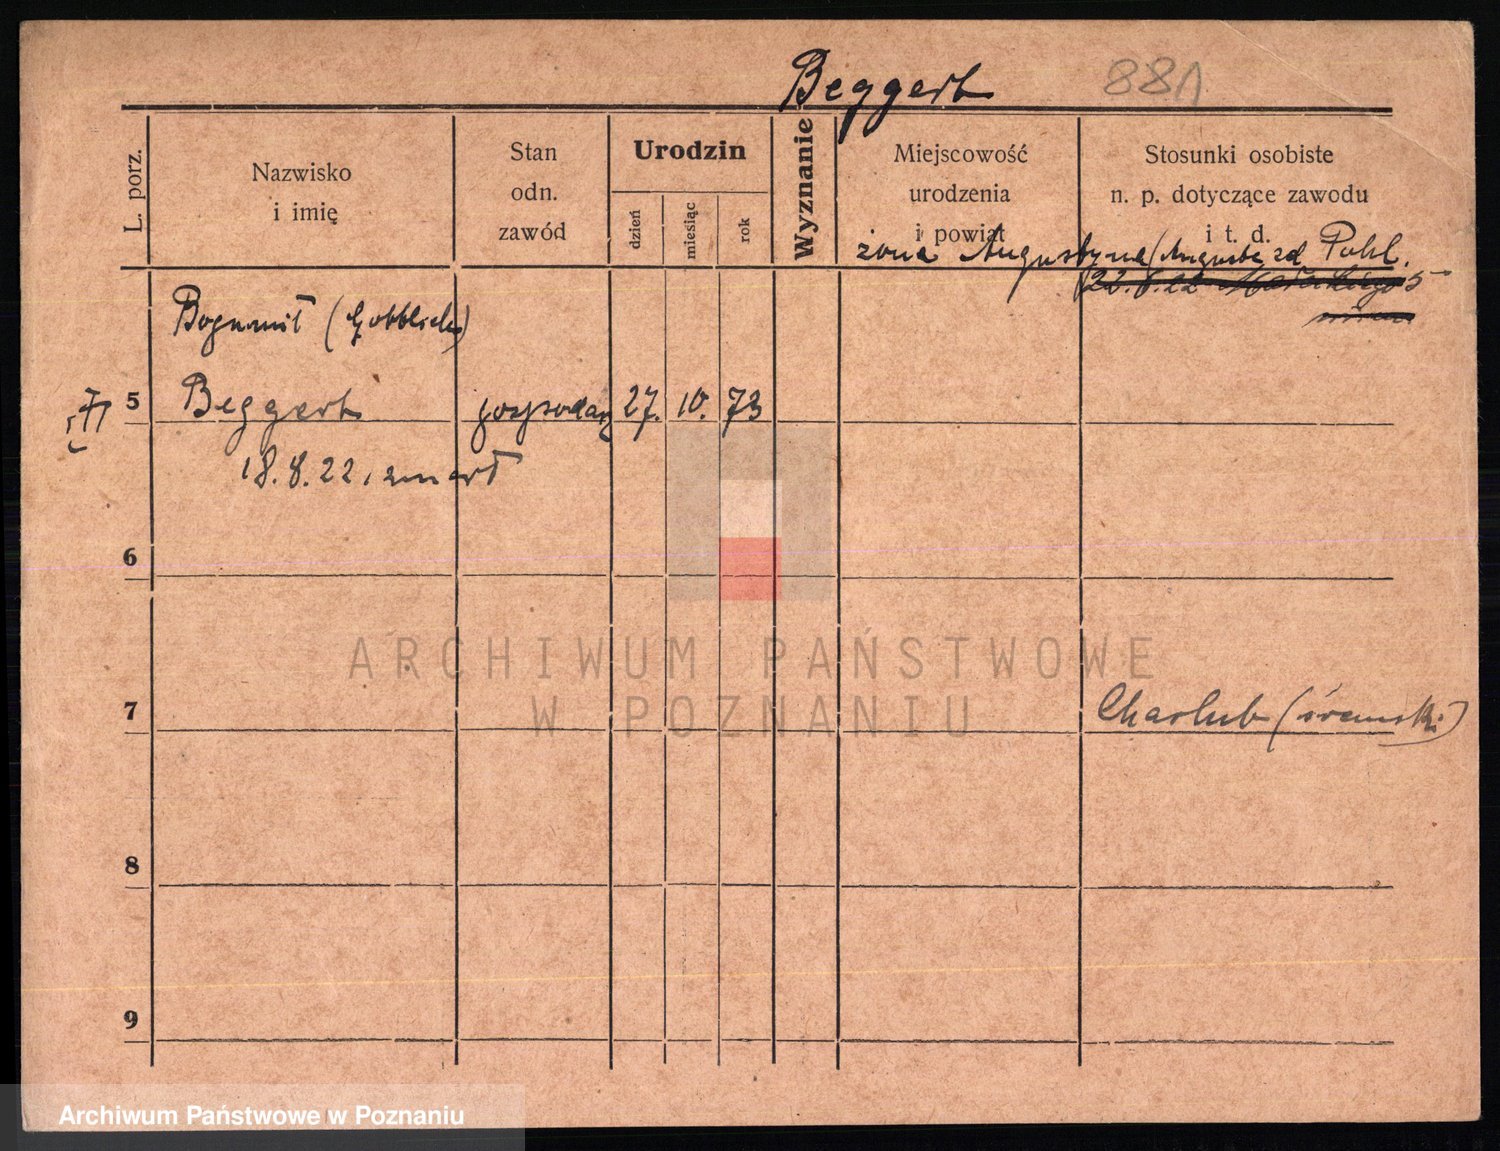 Beggert 881
L. porz.
Nazwisko
i imię
Stan
odn.
zawód
Urodzin
dzień
miesiąc
rok
Wyznanie
Miejscowość
urodzenia
i powiat
Stosunki osobiste
n. p. dotyczące zawodu
i t. d.
żona Augustyna (Auguste zd Pohl.
22.8.22 5
Bogumił (Gottlieb)
5 Beggert gospodarz 27. 10. 73
18.8.22. zmarł
6
ARCHIWUM PAŃSTWOWE
W POZNANIU
7 (śremski)
8
9
Archiwum Państwowe w Poznaniu